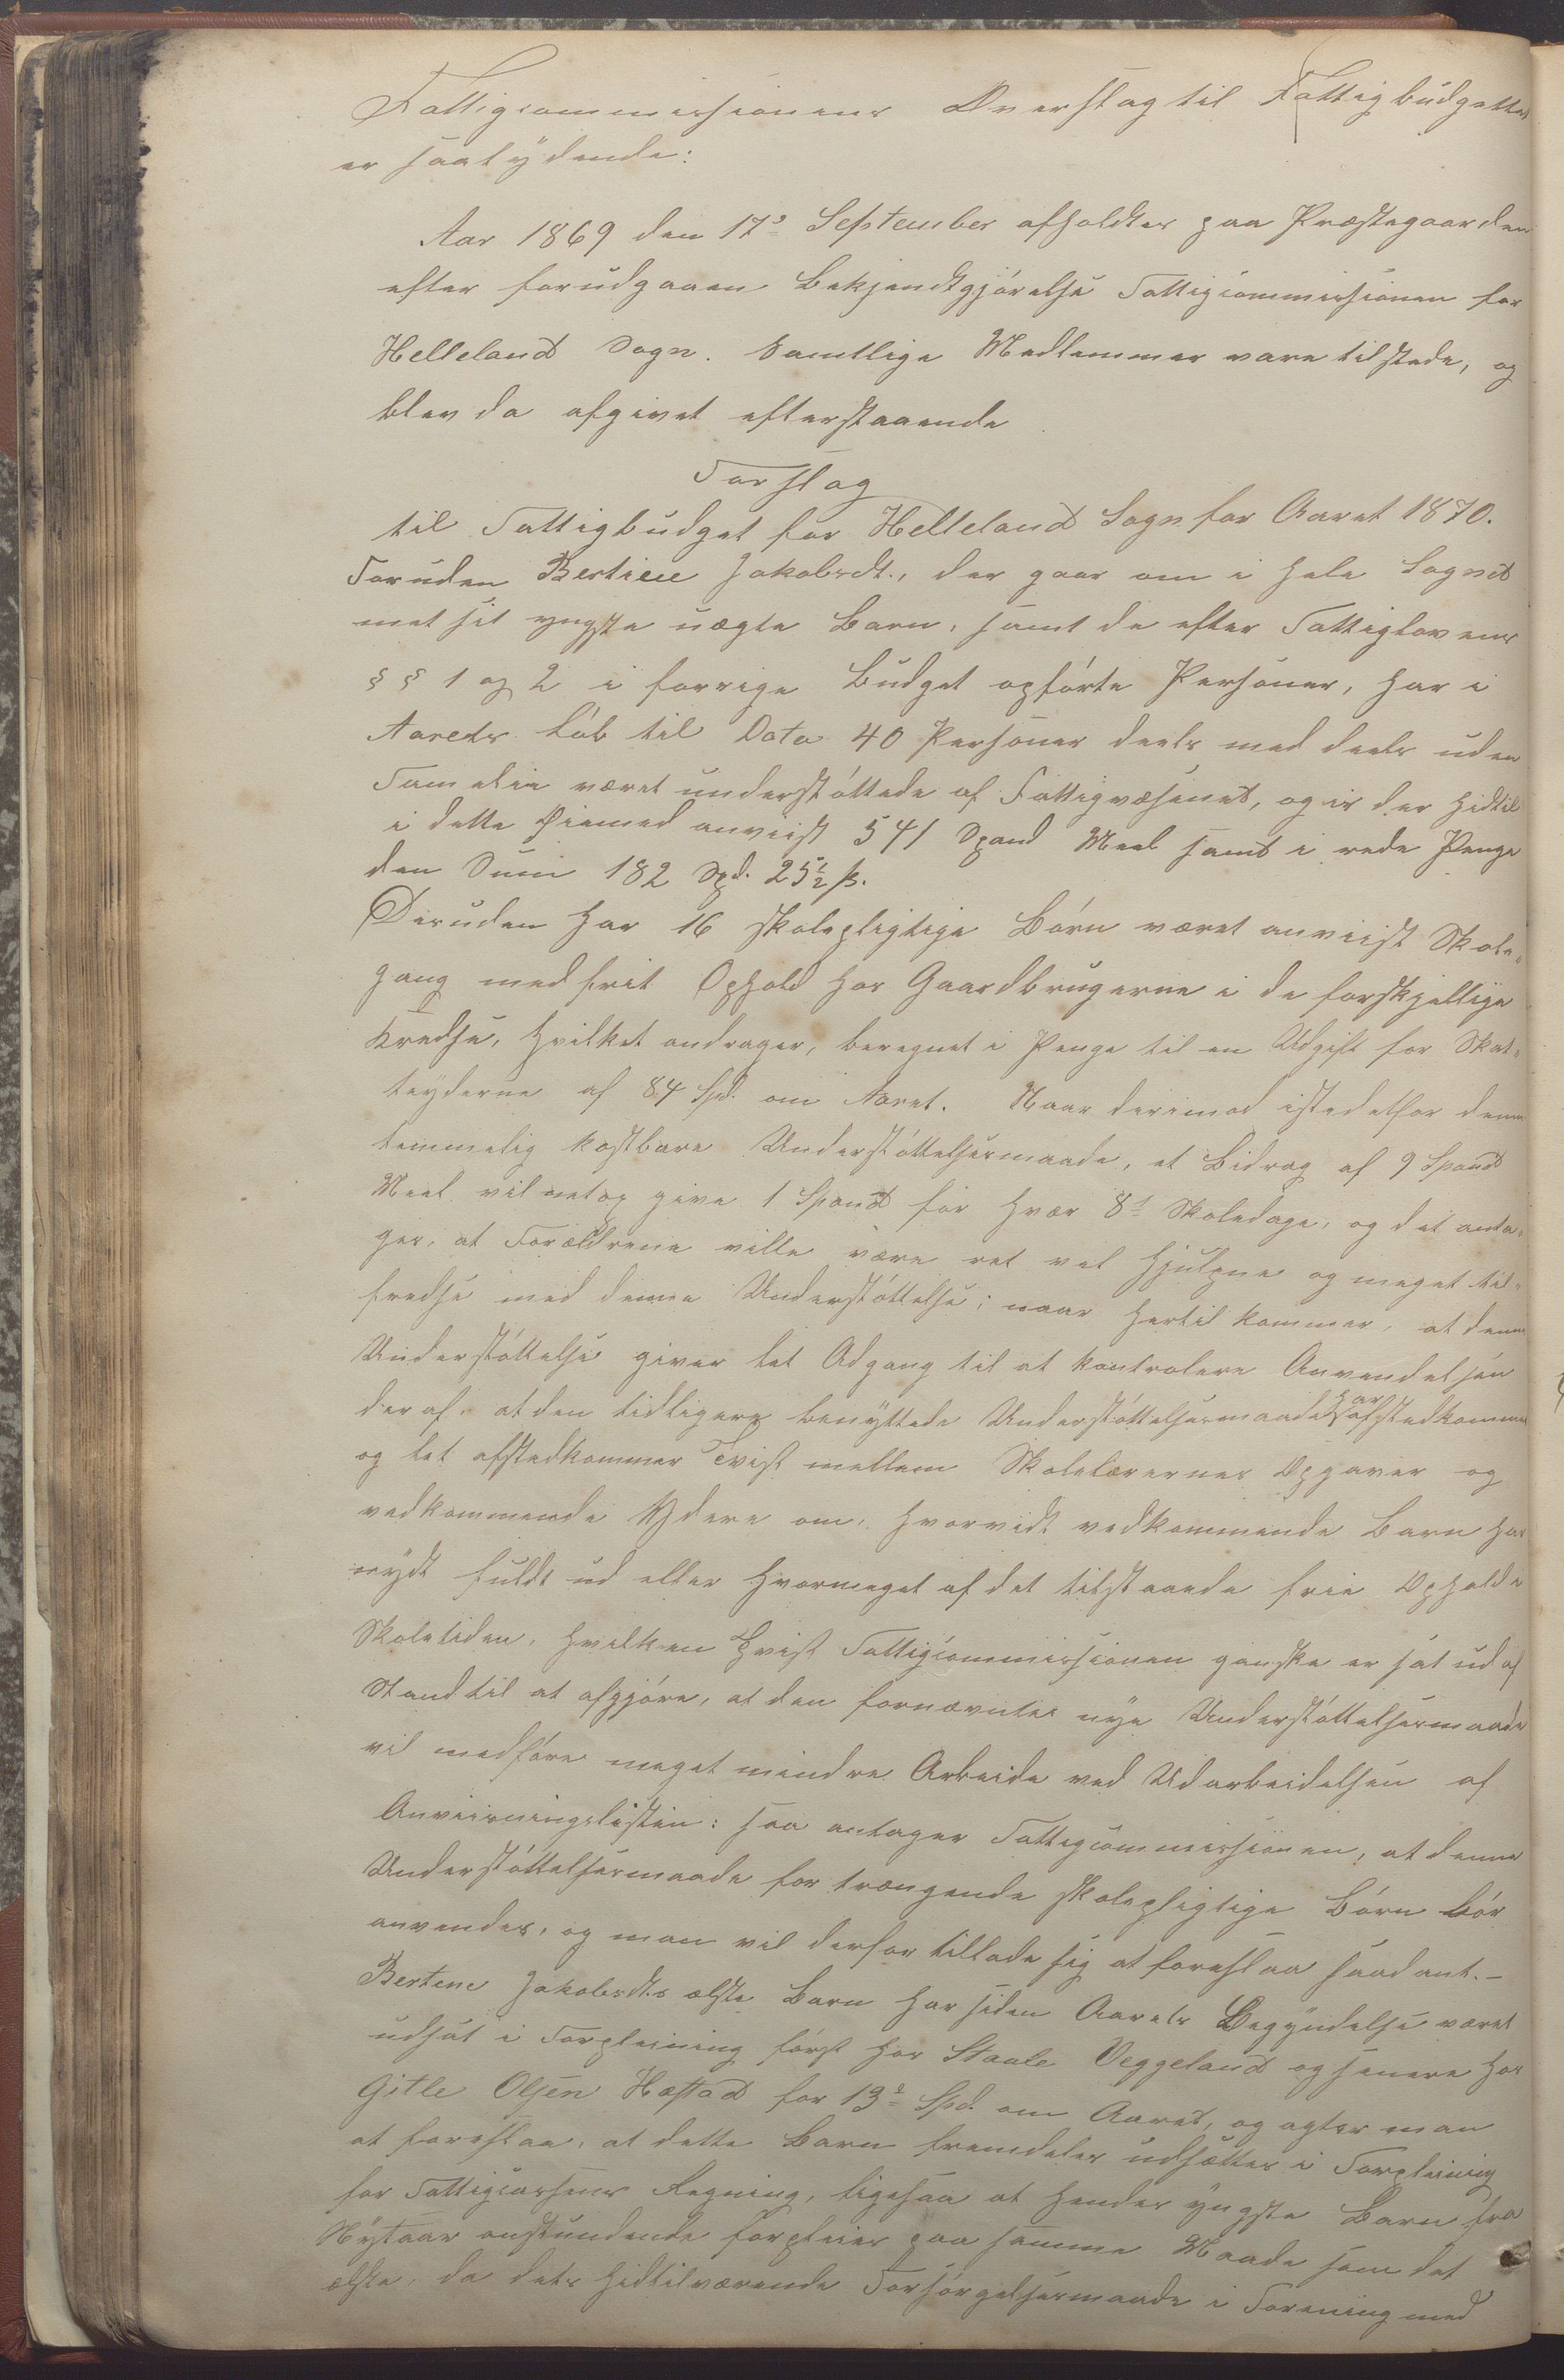 Fattigcommissionens Overslag til Fattigbudgettet
er saalydende:
Aar 1869 den 17de September afholdtes paa Præstegaarden
efter forudgaaen Bekjendtgjörelse Fattigcommissionen for
Helleland Sogn. Samtlige Medlemmer vare tilstede, og
blev da afgivet efterstaaende
Forslag
til Fattigbudget for Helleland Sogn for Aaret 1870.
Foruden Bertine Jakobsdt., der gaar om i hele Sognet
met sit yngste uægte Barn, samt de efter Fattiglovens
§ § 1 og 2 i forrige Budget opförte Personer, har i
Aarets Löb til Dato 40 Personer deels med deels uden
Familie været understöttede af Fattigvæsenet, og er der hidtil
i dette Öiemed anviist 541 Spand Meel samt i rede Penge
den Sum 182 Spd. 25½ ß.
Desuden har 16 skolepligtige Börn været anviist Skole-
gang med frit Ophold hos Gaardbrugerne i de forskjellige
Kredse, hvilket andrager, beregnet i Penge til en Udgift for Skat-
teyderne af 84 Spd. om Aaret. Naar derimod istedetfor denne
temmelig kostbare Understöttelsesmaade, et Bidrag af 9 Spand
Meel vil netop give 1 Spand for hver 8te Skoledage, og det anta-
ges, at Forældrene ville være ret vel hjulpne og meget til-
fredse med denne Understöttelse; naar hertil kommer, at denne
Understöttelse giver let Adgang til at kontrolere Anvendelsen
deraf, at den tidligere benyttede Understöttelsesmaade har afstedkommet
og let afstedkommer Tvist mellem Skolelærernes Opgaver og
vedkommende Ydere om, hvorvidt vedkommende Barn har
nydt fuldt ud eller hvormeget af det tilstaaede frie Ophold i
Skoletiden, hvilken Tvist Fattigcommissionen ganske er sat ud af
Stand til at afgjöre, at den fornævnte nye Understöttelsesmaade
vil medföre meget mindre Arbeide ved Udarbeidelsen af
Anviisningslisten: saa antager Fattigcommissionen, at denne
Understöttelsesmaade for trængende skolepligtige Börn bör
anvendes, og man vil derfor tillade sig at foreslaa saadant.-
Bertene Jakobsdts ælste Barn har siden Aarets Begyndelse været
udsat i Forpleining först hos Staale Veggeland og senere hos
Gitle Olsen Hæstad for 13 Spd. om Aaret, og agter man
at foreslaa, at dette Barn fremdeles udsættes i Forpleining
for Fattigcassens Regning, ligesaa at hendes yngste Barn fra
Nytaar anstundende forpleies paa samme Maade som det
ælste, da dets hidtilværende Forsörgelsesmaade i Forening med